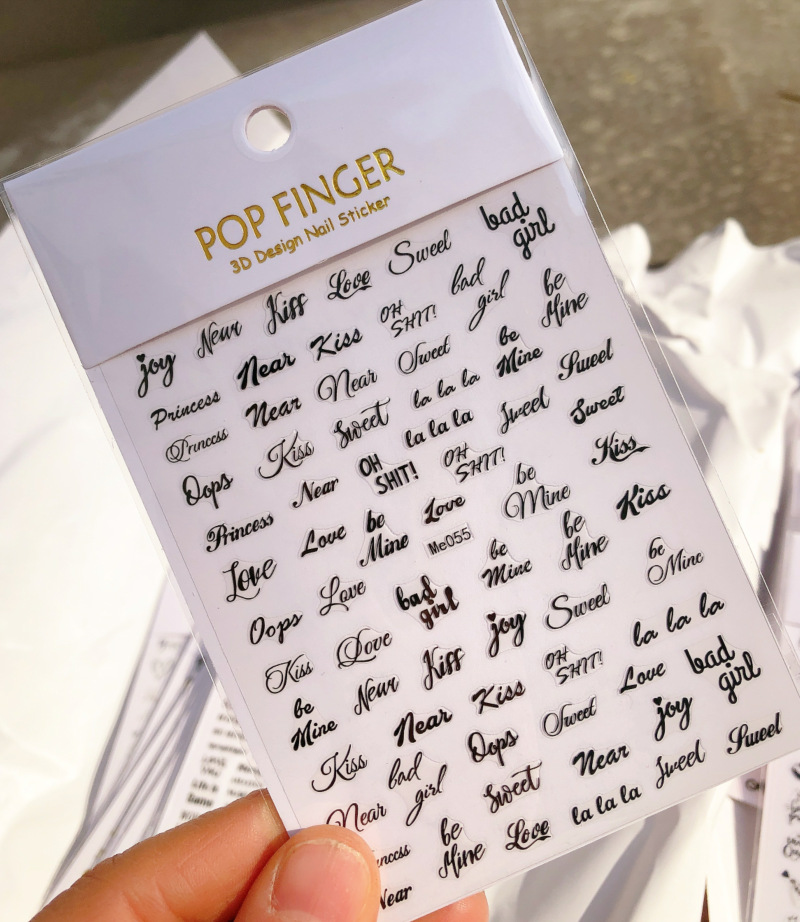 POP FINGER
3D Design Nail Sticker
joy Near Kiss Love Sweet bad girl
Princess Near Kiss OH SHIT! bad girl be Mine
Princess Near Near Sweet be Mine Sweet
Oops Kiss Sweet la la la Sweet Sweet
Princess Near OH SHIT! la la la OH SHIT! Kiss
Love Love be Mine Love be Mine Kiss
Me055
Oops Love bad girl be Mine be Mine be Mine
Kiss Love Kiss joy Sweet la la la
be Mine Near Near Kiss OH SHIT! Love bad girl
Kiss bad girl Oops Sweet Near joy Sweet
Near Sweet la la la Sweet
be Mine Love
Near